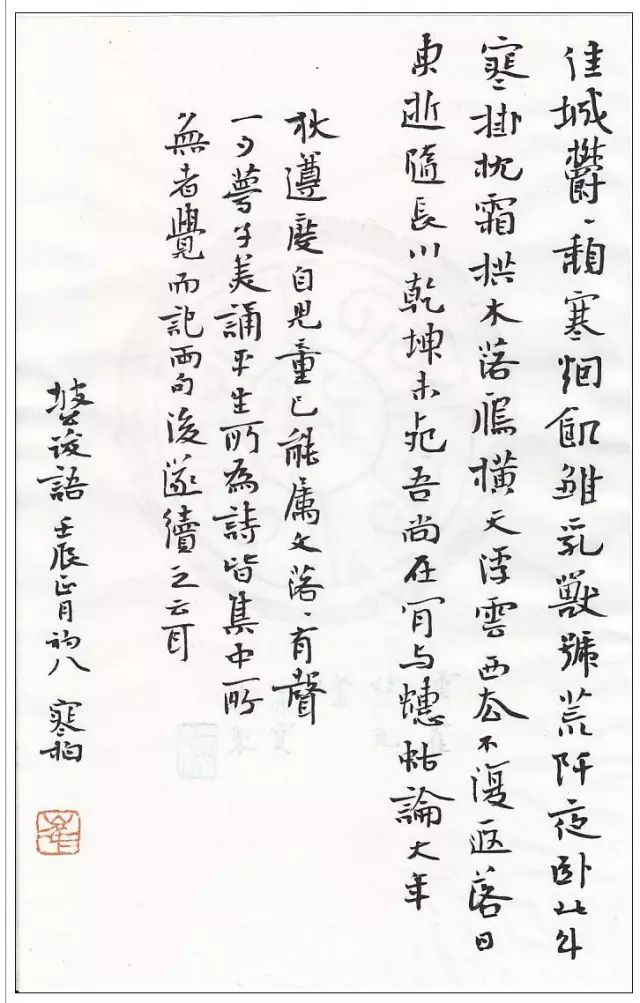 佳城鬱〻頹寒烟飢雏乳獸號荒阡夜卧北斗
寒掛枕霜拱木落鴈橫天浮雲西去不復返落日
東逝隨長川乾坤未死吾尚在肯与蟪蛄論大年
狄遵度自兒童已能属文落〻有聲
一夕夢子美誦平生所為詩皆集中所
無者覺而記兩句後遂續之云耳
坡 語 壬辰正月初八 寒